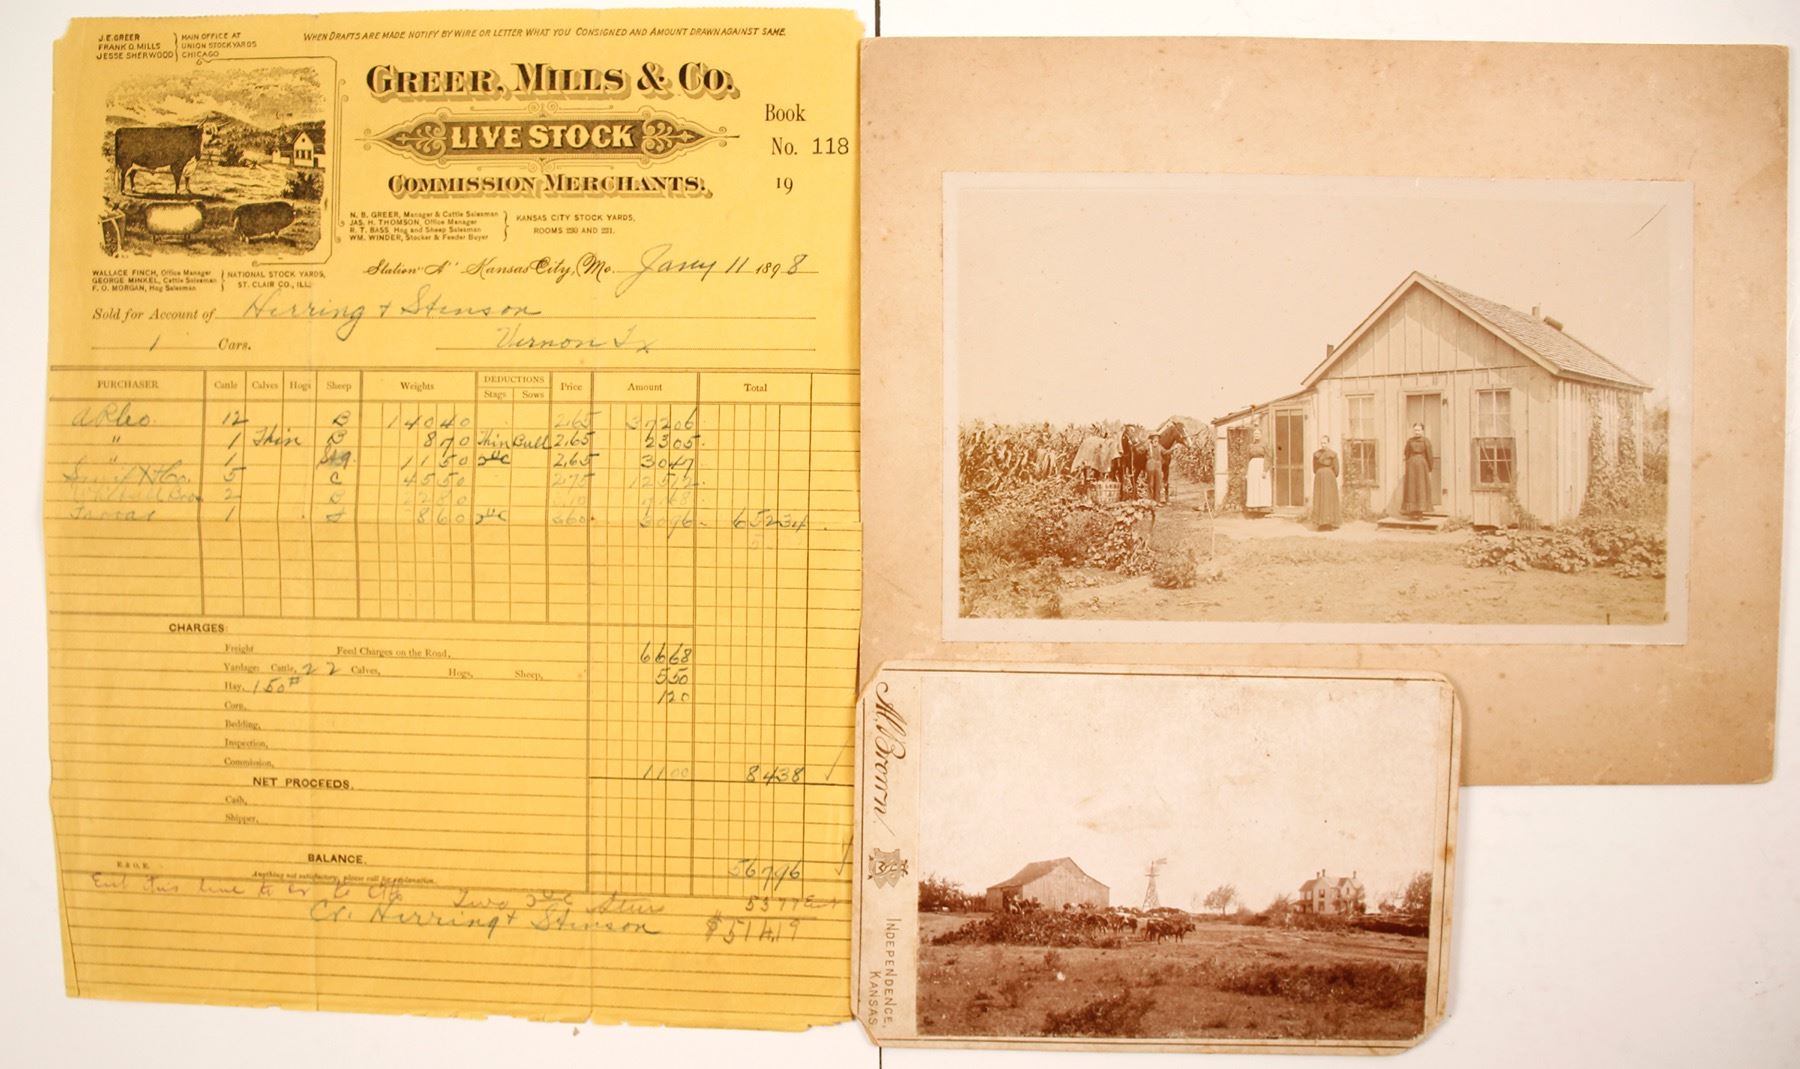 J. E. GREER
FRANK O. MILLS
JESSE SHERWOOD
MAIN OFFICE AT
UNION STOCK YARDS
CHICAGO
WHEN DRAFTS ARE MADE NOTIFY BY WIRE OR LETTER WHAT YOU CONSIGNED AND AMOUNT DRAWN AGAINST SAME.
GREER, MILLS & CO.
LIVE STOCK
COMMISSION MERCHANTS.
Book
No. 118
19
N. B. GREER, Manager & Cattle Salesman
JAS. H. THOMSON, Office Manager
R. T. BASS Hog and Sheep Salesman
WM. WINDER, Stocker & Feeder Buyer
KANSAS CITY STOCK YARDS,
ROOMS 230 AND 231.
WALLACE FINCH, Office Manager
GEORGE MINKEL, Cattle Salesman
F. O. MORGAN, Hog Salesman
NATIONAL STOCK YARDS,
ST. CLAIR CO., ILL.
Station "A" Kansas City, Mo. Jany 11 1898
Sold for Account of Herring & Stinson
1 Cars. Vernon Tx
PURCHASER Cattle Calves Hogs Sheep Weights DEDUCTIONS Stags Sows Price Amount Total
12 B 14040 2.65 37206
" 1 Thin B 870 Thin Bull 2.65 2305
" 1 Stag 1150 2.65 3047
5 C 4550 275 12512
2 B
1 860 360 3096 65234
CHARGES:
Freight Feed Charges on the Road, 6668
Yardage: Cattle, 22 Calves, Hogs, Sheep, 550
Hay, 150# 120
Corn,
Bedding,
Inspection,
Commission, 1100 8438
NET PROCEEDS.
Cash,
Shipper,
BALANCE. 56796
E. & O. E.
Anything not satisfactory, please call for explanation.
Ent this line to
Two 5377 Ent
Cr. Herring & Stinson $514.19
A. Brown
INDEPENDENCE,
KANSAS